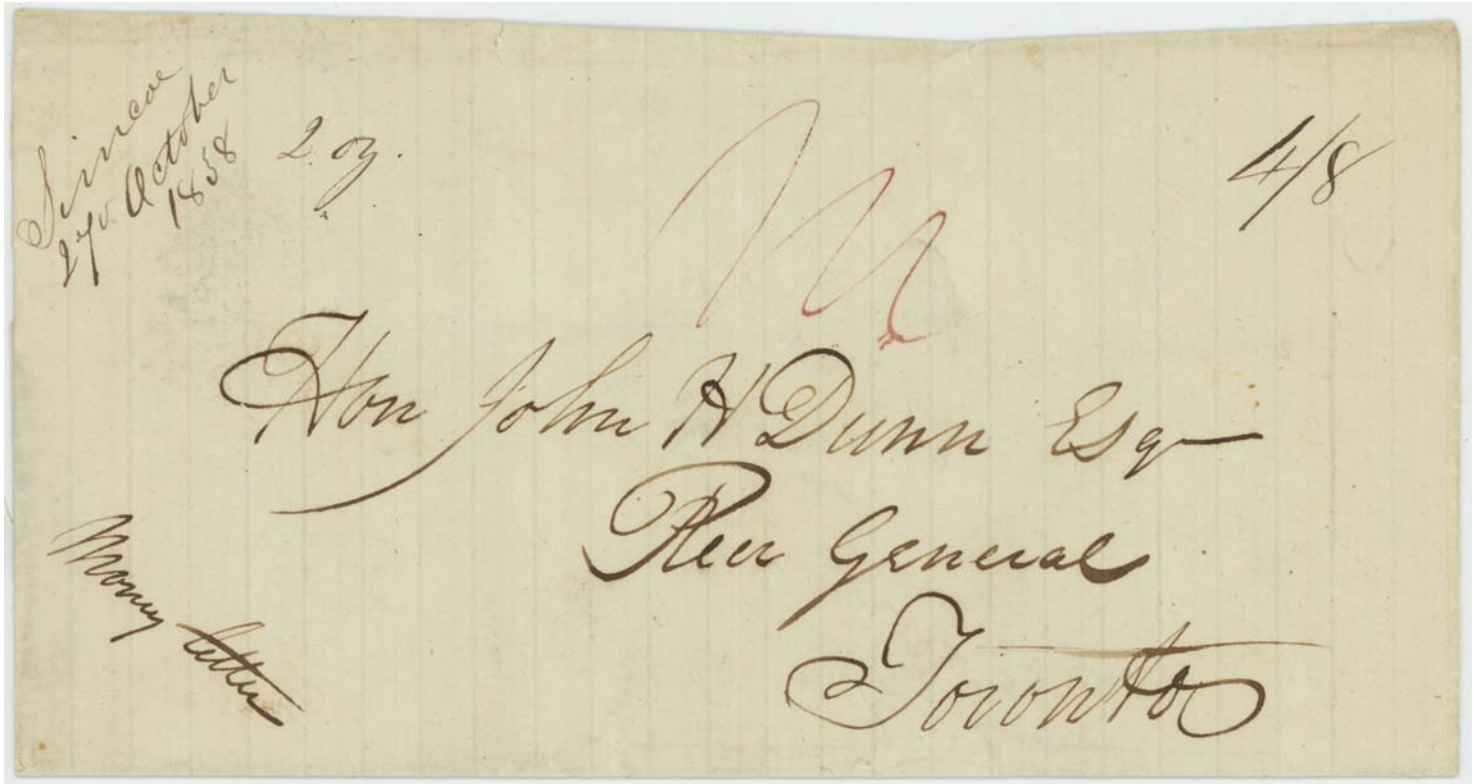 Simcoe
27th October
1838
2 oz.
M
4/8
Hon John H Dunn Esqr
Recr General
Toronto
Money letter